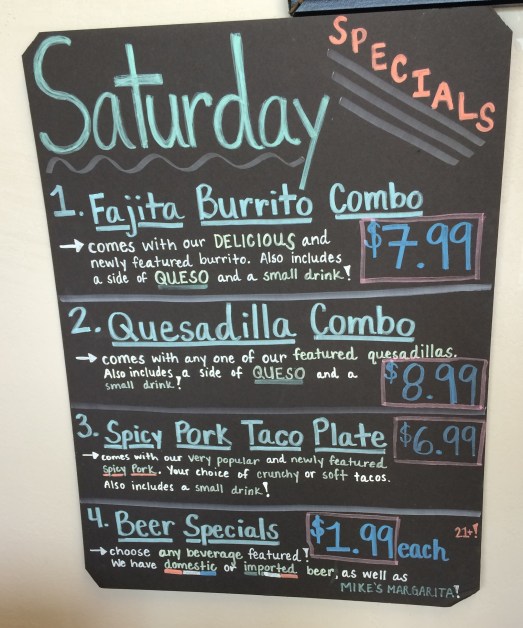 Saturday
SPECIALS
1. Fajita Burrito Combo
→ comes with our DELICIOUS and
newly featured burrito. Also includes
a side of QUESO and a small drink!
$7.99
2. Quesadilla Combo
→ comes with any one of our featured quesadillas.
Also includes a side of QUESO and a
small drink!
$8.99
3. Spicy Pork Taco Plate
$6.99
→ comes with our very popular and newly featured
Spicy Pork. Your choice of crunchy or soft tacos.
Also includes a small drink!
4. Beer Specials
$1.99 each
21+!
→ choose any beverage featured!
We have domestic or imported beer, as well as
MIKE'S MARGARITA!